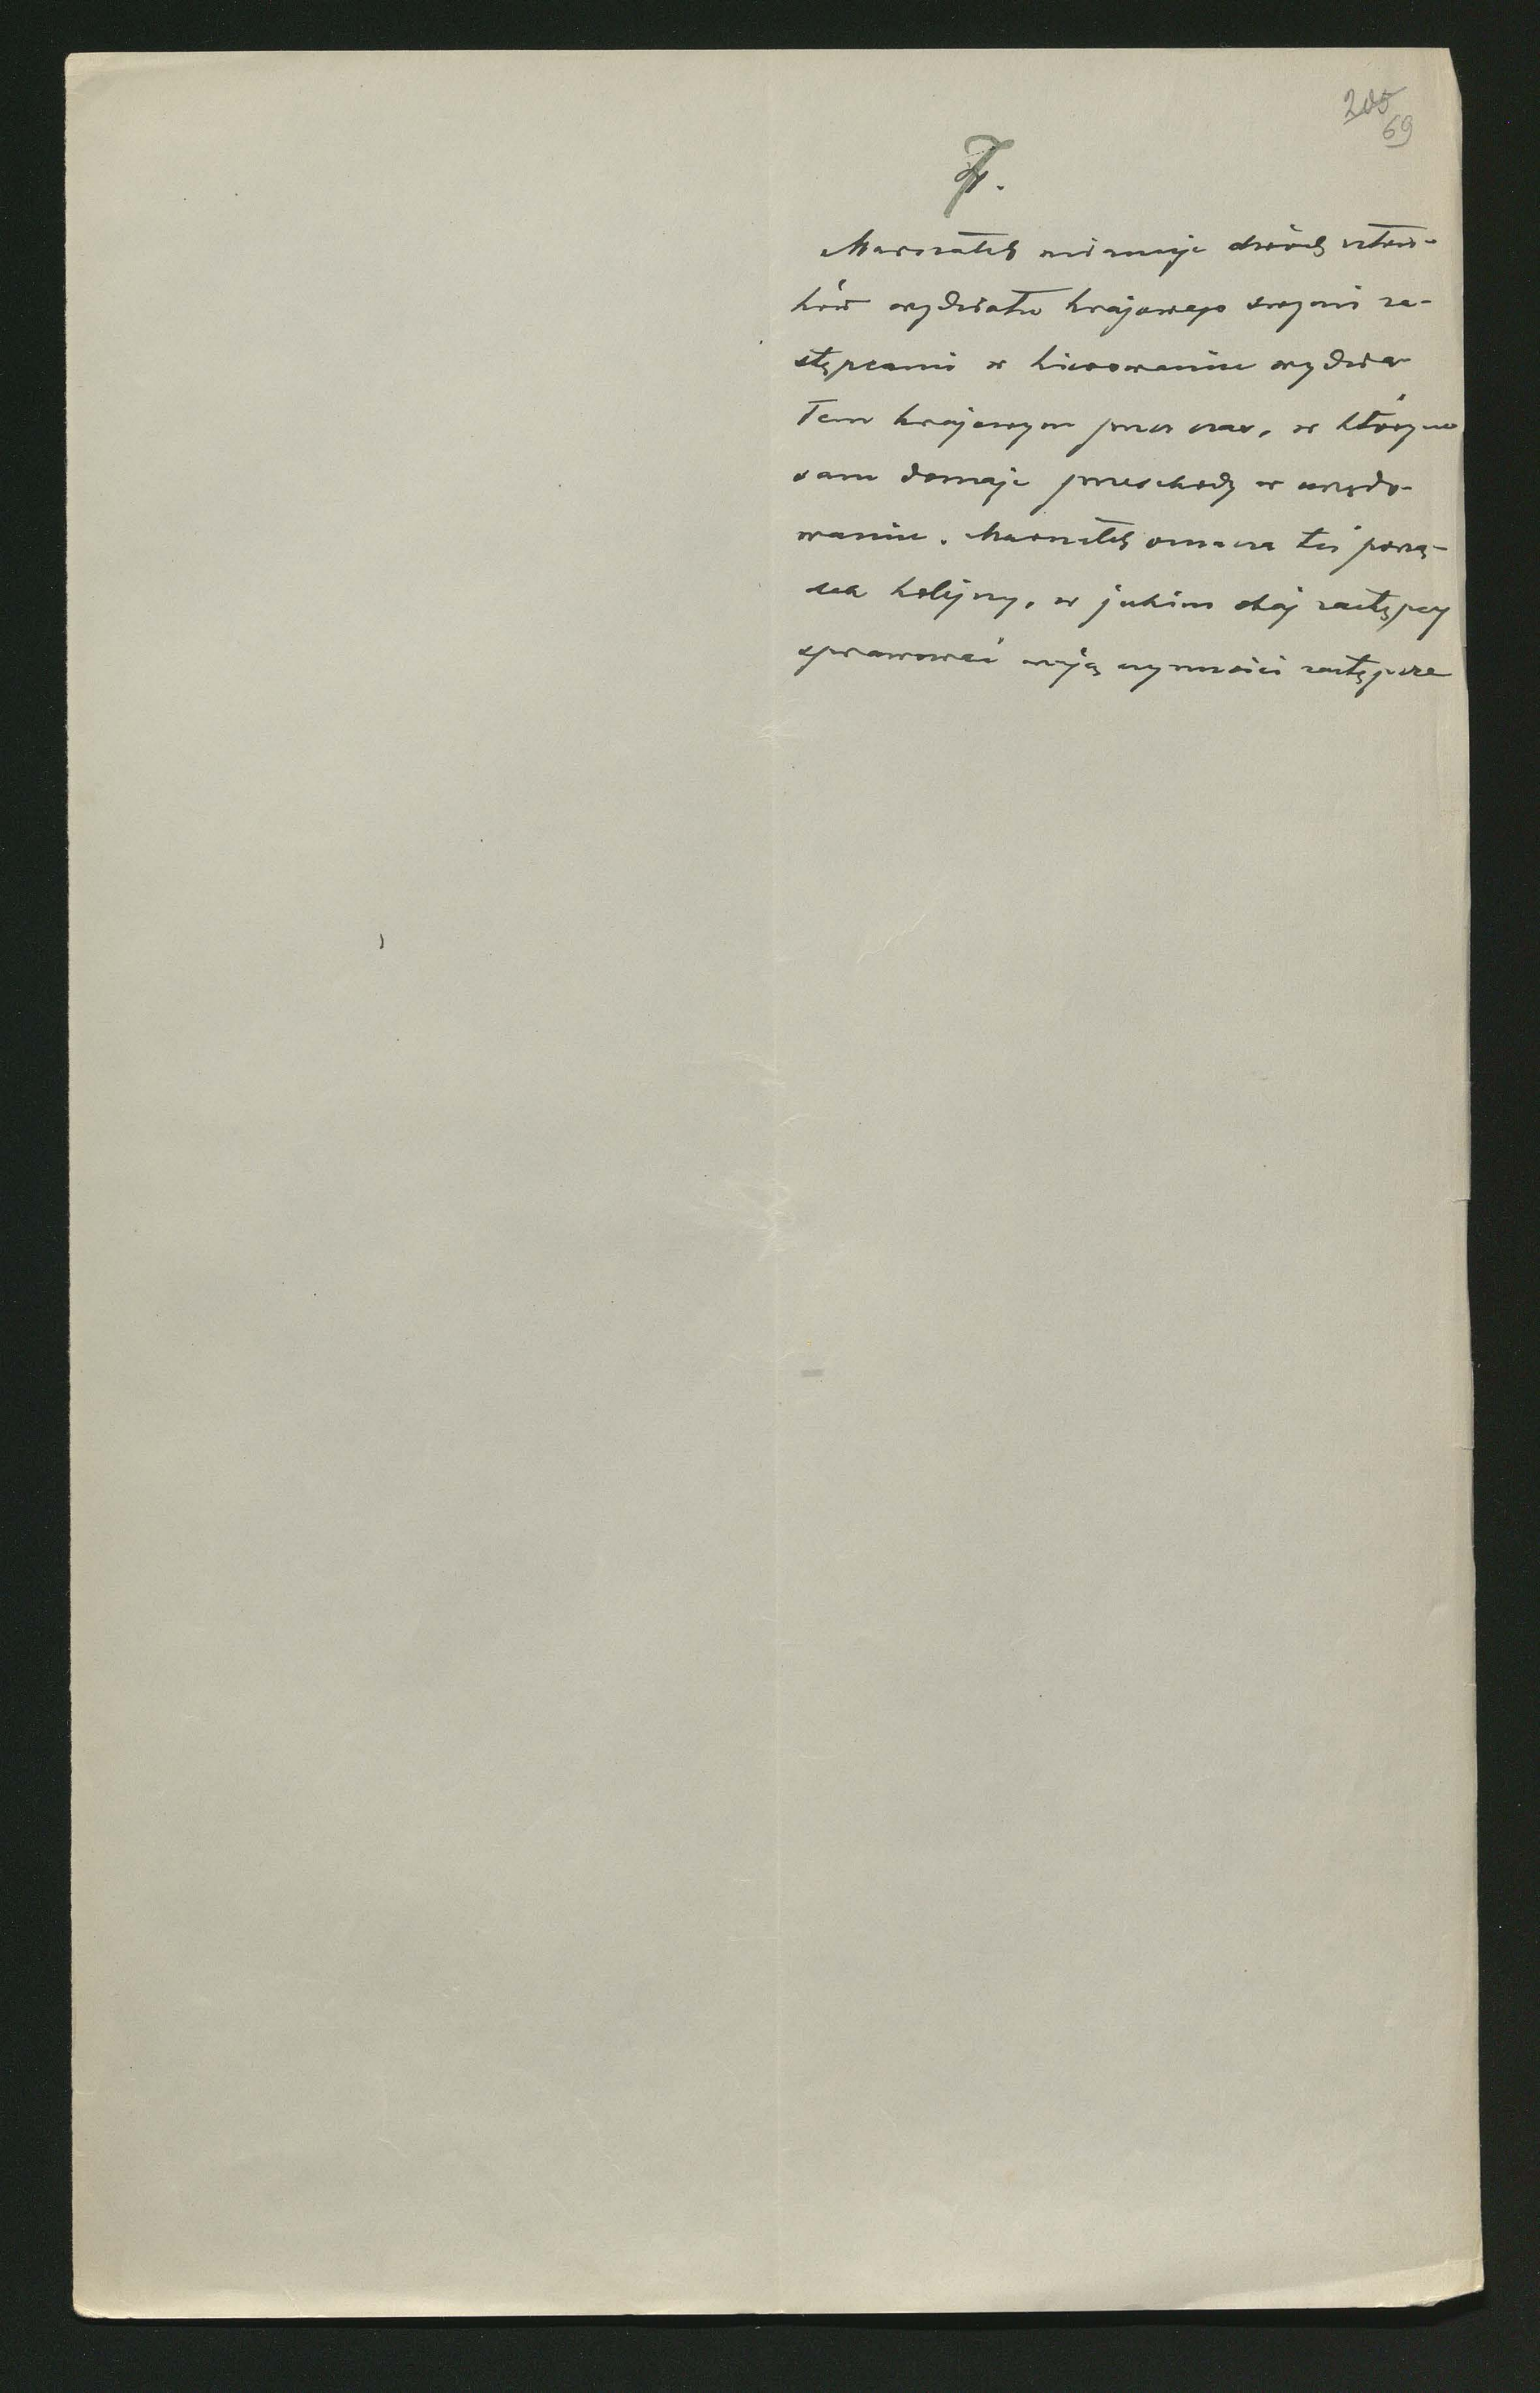 205
69
7.
Marszałek mianuje dwóch człon-
ków wydziału krajowego swymi za-
stępcami w kierowaniu wydzia
łem krajowym przez czas, w którym
sam doznaje przeszkody w urzędo-
waniu. Marszałek oznacza też porzą-
dek kolejny, w jakim obaj zastępcy
sprawować mają czynności zastępcze